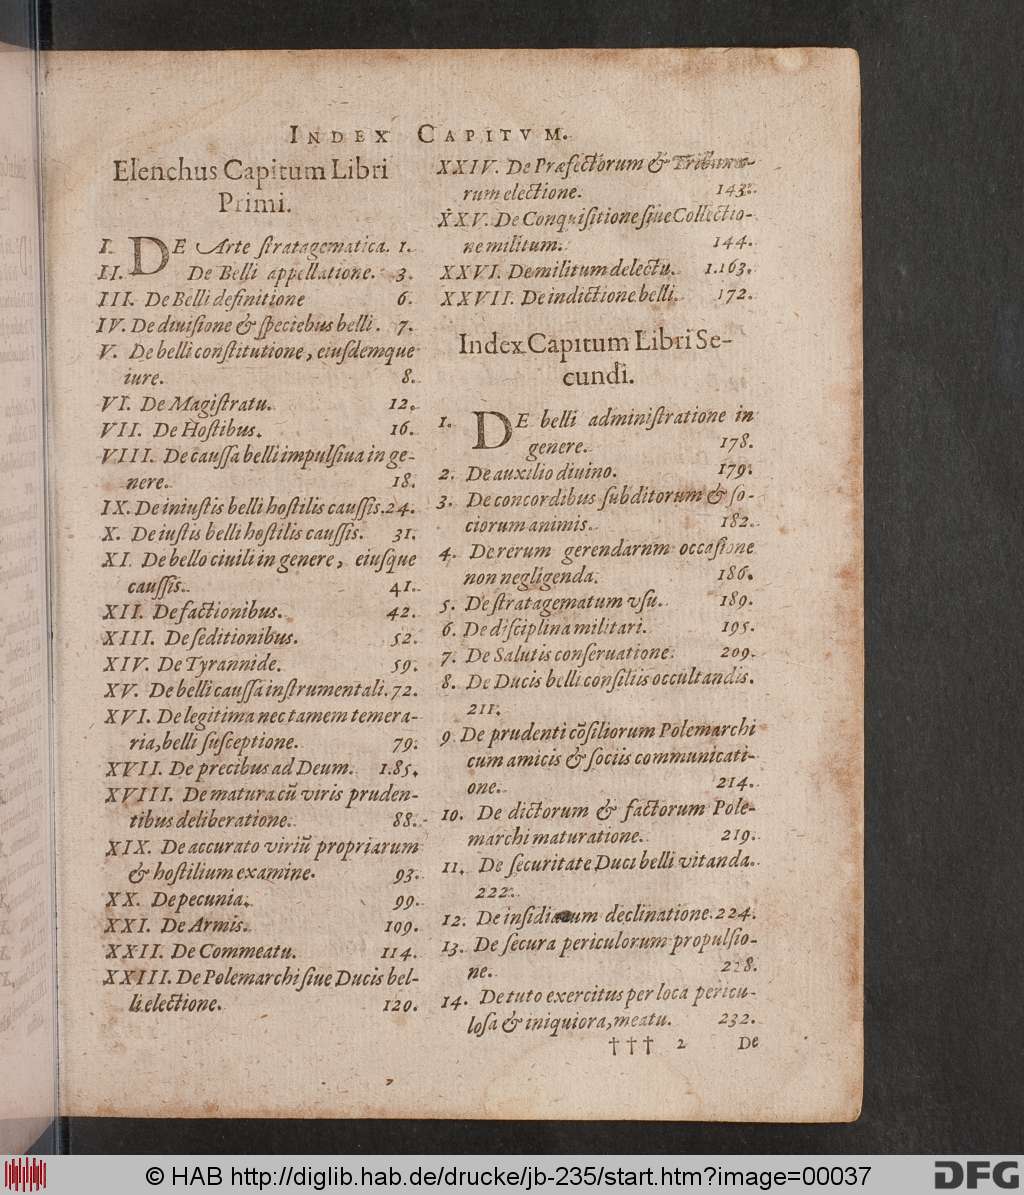 INDEX CAPITVM.
Elenchus Capitum Libri
Primi.
I. DE Arte ſtratagematica. 1.
II. De Belli appellatione. 3.
III. De Belli definitione 6.
IV. De diuiſione & ſpeciebus belli. 7.
V. De belli conſtitutione, eiuſdemque
iure. 8.
VI. De Magiſtratu. 12.
VII. De Hoſtibus. 16.
VIII. De cauſſa belli impulſiua in ge-
nere. 18.
IX. De iniuſtis belli hoſtilis cauſſis. 24.
X. De iuſtis belli hoſtilis cauſſis. 31.
XI. De bello ciuili in genere, eiuſque
cauſſis. 41.
XII. De factionibus. 42.
XIII. De ſeditionibus. 52.
XIV. De Tyrannide. 59.
XV. De belli cauſſa inſtrumentali. 72.
XVI. De legitima nec tamem temera-
ria, belli ſuſceptione. 79.
XVII. De precibus ad Deum. 1.85.
XVIII. De matura cũ viris pruden-
tibus deliberatione. 88.
XIX. De accurato viriũ propriarum
& hoſtilium examine. 93.
XX. De pecunia. 99.
XXI. De Armis. 109.
XXII. De Commeatu. 114.
XXIII. De Polemarchi ſiue Ducis bel-
li electione. 120.
XXIV. De Præfectorum & Tribuno-
rum electione. 143.
XXV. De Conquiſitione ſiue Collectio-
ne militum. 144.
XXVI. De militum delectu. 1.163.
XXVII. De indictione belli. 172.
Index Capitum Libri Se-
cundi.
1. DE belli adminiſtratione in
genere. 178.
2. De auxilio diuino. 179.
3. De concordibus ſubditorum & ſo-
ciorum animis. 182.
4. De rerum gerendarnm occaſione
non negligenda. 186.
5. De ſtratagematum vſu. 189.
6. De diſciplina militari. 195.
7. De Salutis conſeruatione. 209.
8. De Ducis belli conſiliis occultandis.
211.
9 De prudenti cõſiliorum Polemarchi
cum amicis & ſociis communicati-
one. 214.
10. De dictorum & factorum Pole-
marchi maturatione. 219.
11. De ſecuritate Duci belli vitanda.
222.
12. De inſidiarum declinatione. 224.
13. De ſecura periculorum propulſio-
ne. 228.
14. De tuto exercitus per loca pericu-
loſa & iniquiora, meatu. 232.
††† 2 De
© HAB http://diglib.hab.de/drucke/jb-235/start.htm?image=00037 DFG